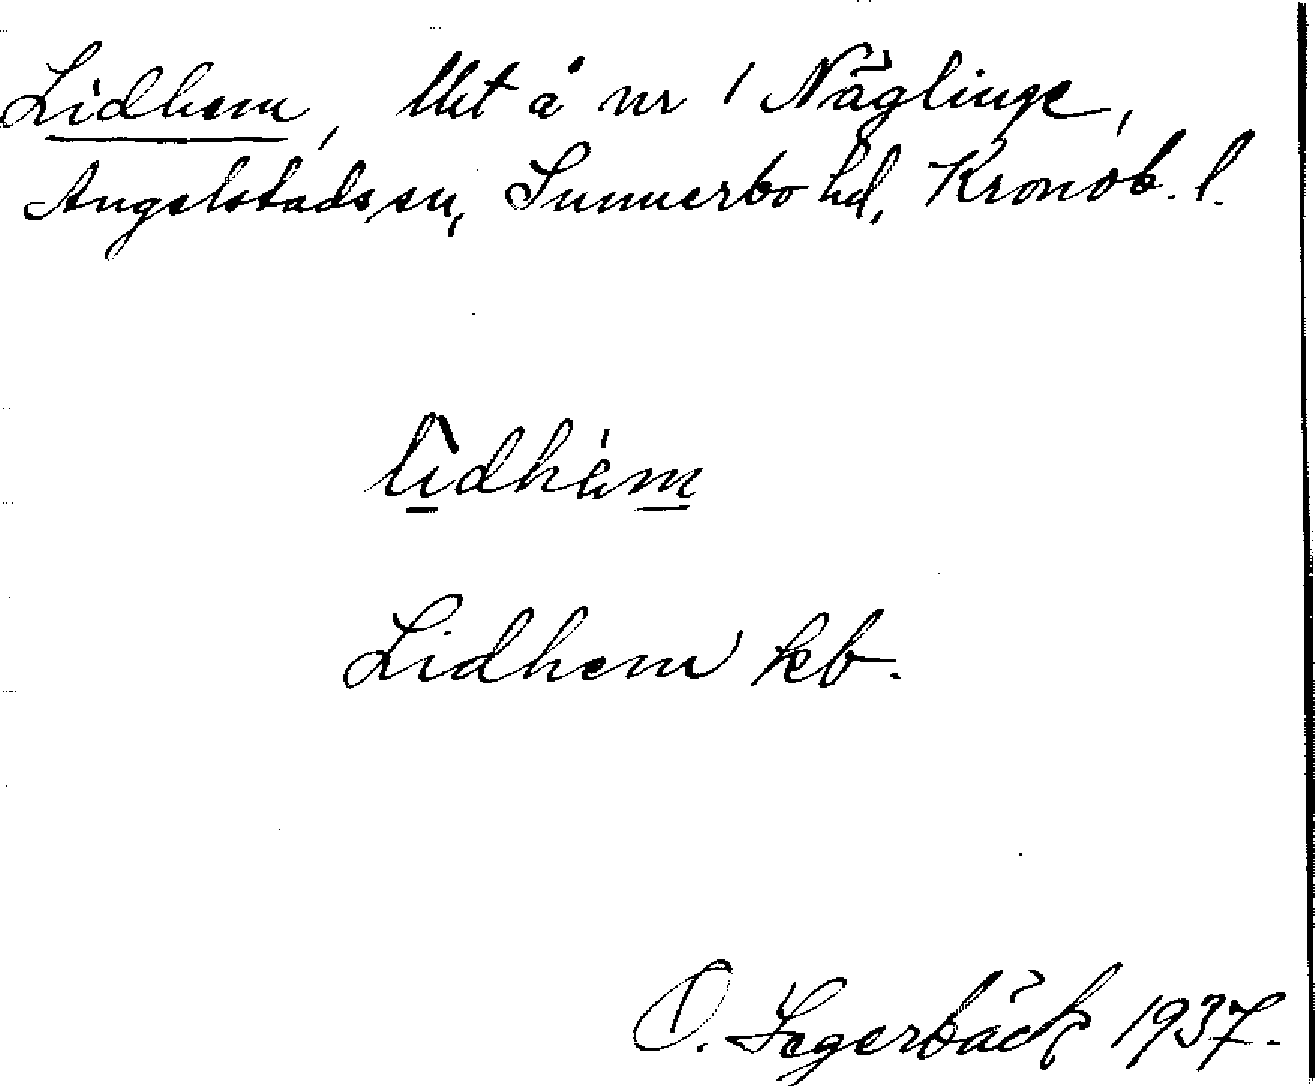 Lidhem, lht å nr 1 Näglinge,
Angelstads sn, Sunnerbo hd, Kronob. l.
lìdhèm
Lidhem kb.
O. Segerbäck 1937.